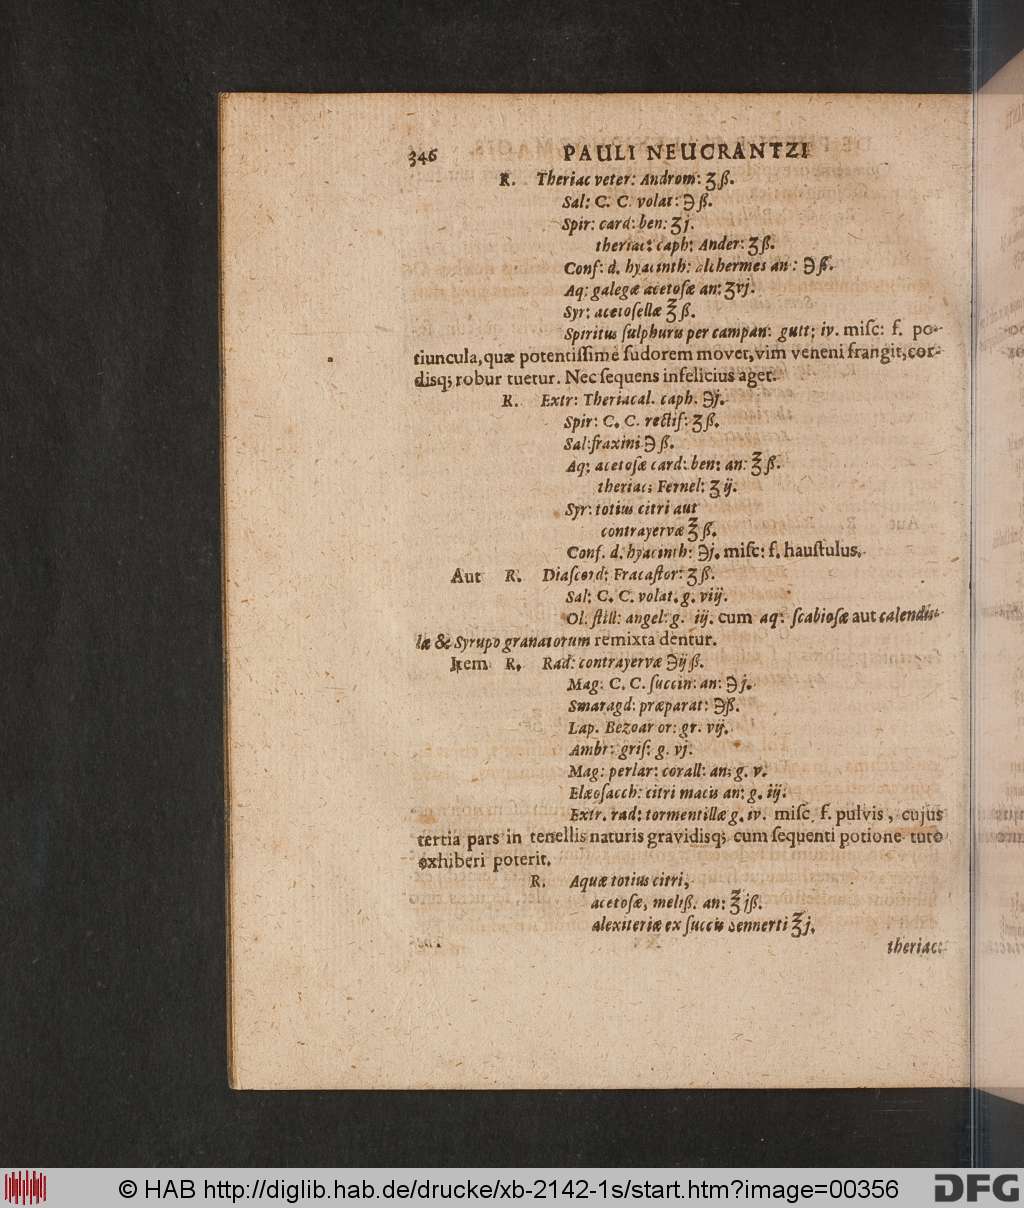 346 PAULI NEUCRANTZI
R. Theriac veter: Androm: ʒ ß.
Sal: C. C. volat: ℈ ß.
Spir: card: ben: ʒ j.
theriac: caph: Ander: ʒ ß.
Conf: d. hyacinth: alchermes an: ℈ ß.
Aq: galegæ acetoſæ an: ʒvj.
Syr: acetoſellæ ℥ ß.
Spiritus ſulphuris per campan: gutt: iv. miſc: f. po-
tiuncula, quæ potentiſſimè ſudorem movet, vim veneni frangit, cor-
disq; robur tuetur. Nec ſequens infelicius aget.
R. Extr: Theriacal. caph. ℈j.
Spir: C. C. rectif: ʒ ß.
Sal: fraxini ℈ ß.
Aq: acetoſæ card: ben: an: ℥ ß.
theriac: Fernel: ʒ ij.
Syr: totius citri aut
contrayervæ ℥ ß.
Conf. d. hyacinth: ℈j. miſc: f. hauſtulus.
Aut R. Diaſcord: Fracaſtor: ʒ ß.
Sal: C. C. volat. g. viij.
Ol. ſtill: angel: g. iij. cum aq: ſcabioſæ aut calendu-
læ & Syrupo granatorum remixta dentur.
Item R. Rad: contrayervæ ℈ij ß.
Mag: C. C. ſuccin: an: ℈ j.
Smaragd: præparat: ℈ß.
Lap. Bezoar or: gr. vij.
Ambr: griſ: g. vj.
Mag: perlar: corall: an: g. v.
Elæoſacch: citri macis an: g. iij.
Extr. rad: tormentillæ g. iv. miſc. f. pulvis, cujus
tertia pars in tenellis naturis gravidisq; cum ſequenti potione tutò
exhiberi poterit.
R. Aquæ totius citri,
acetoſæ, meliß. an: ℥ jß.
alexiteriæ ex ſuccis Sennerti ℥ j.
theriac:
© HAB http://diglib.hab.de/drucke/xb-2142-1s/start.htm?image=00356 DFG